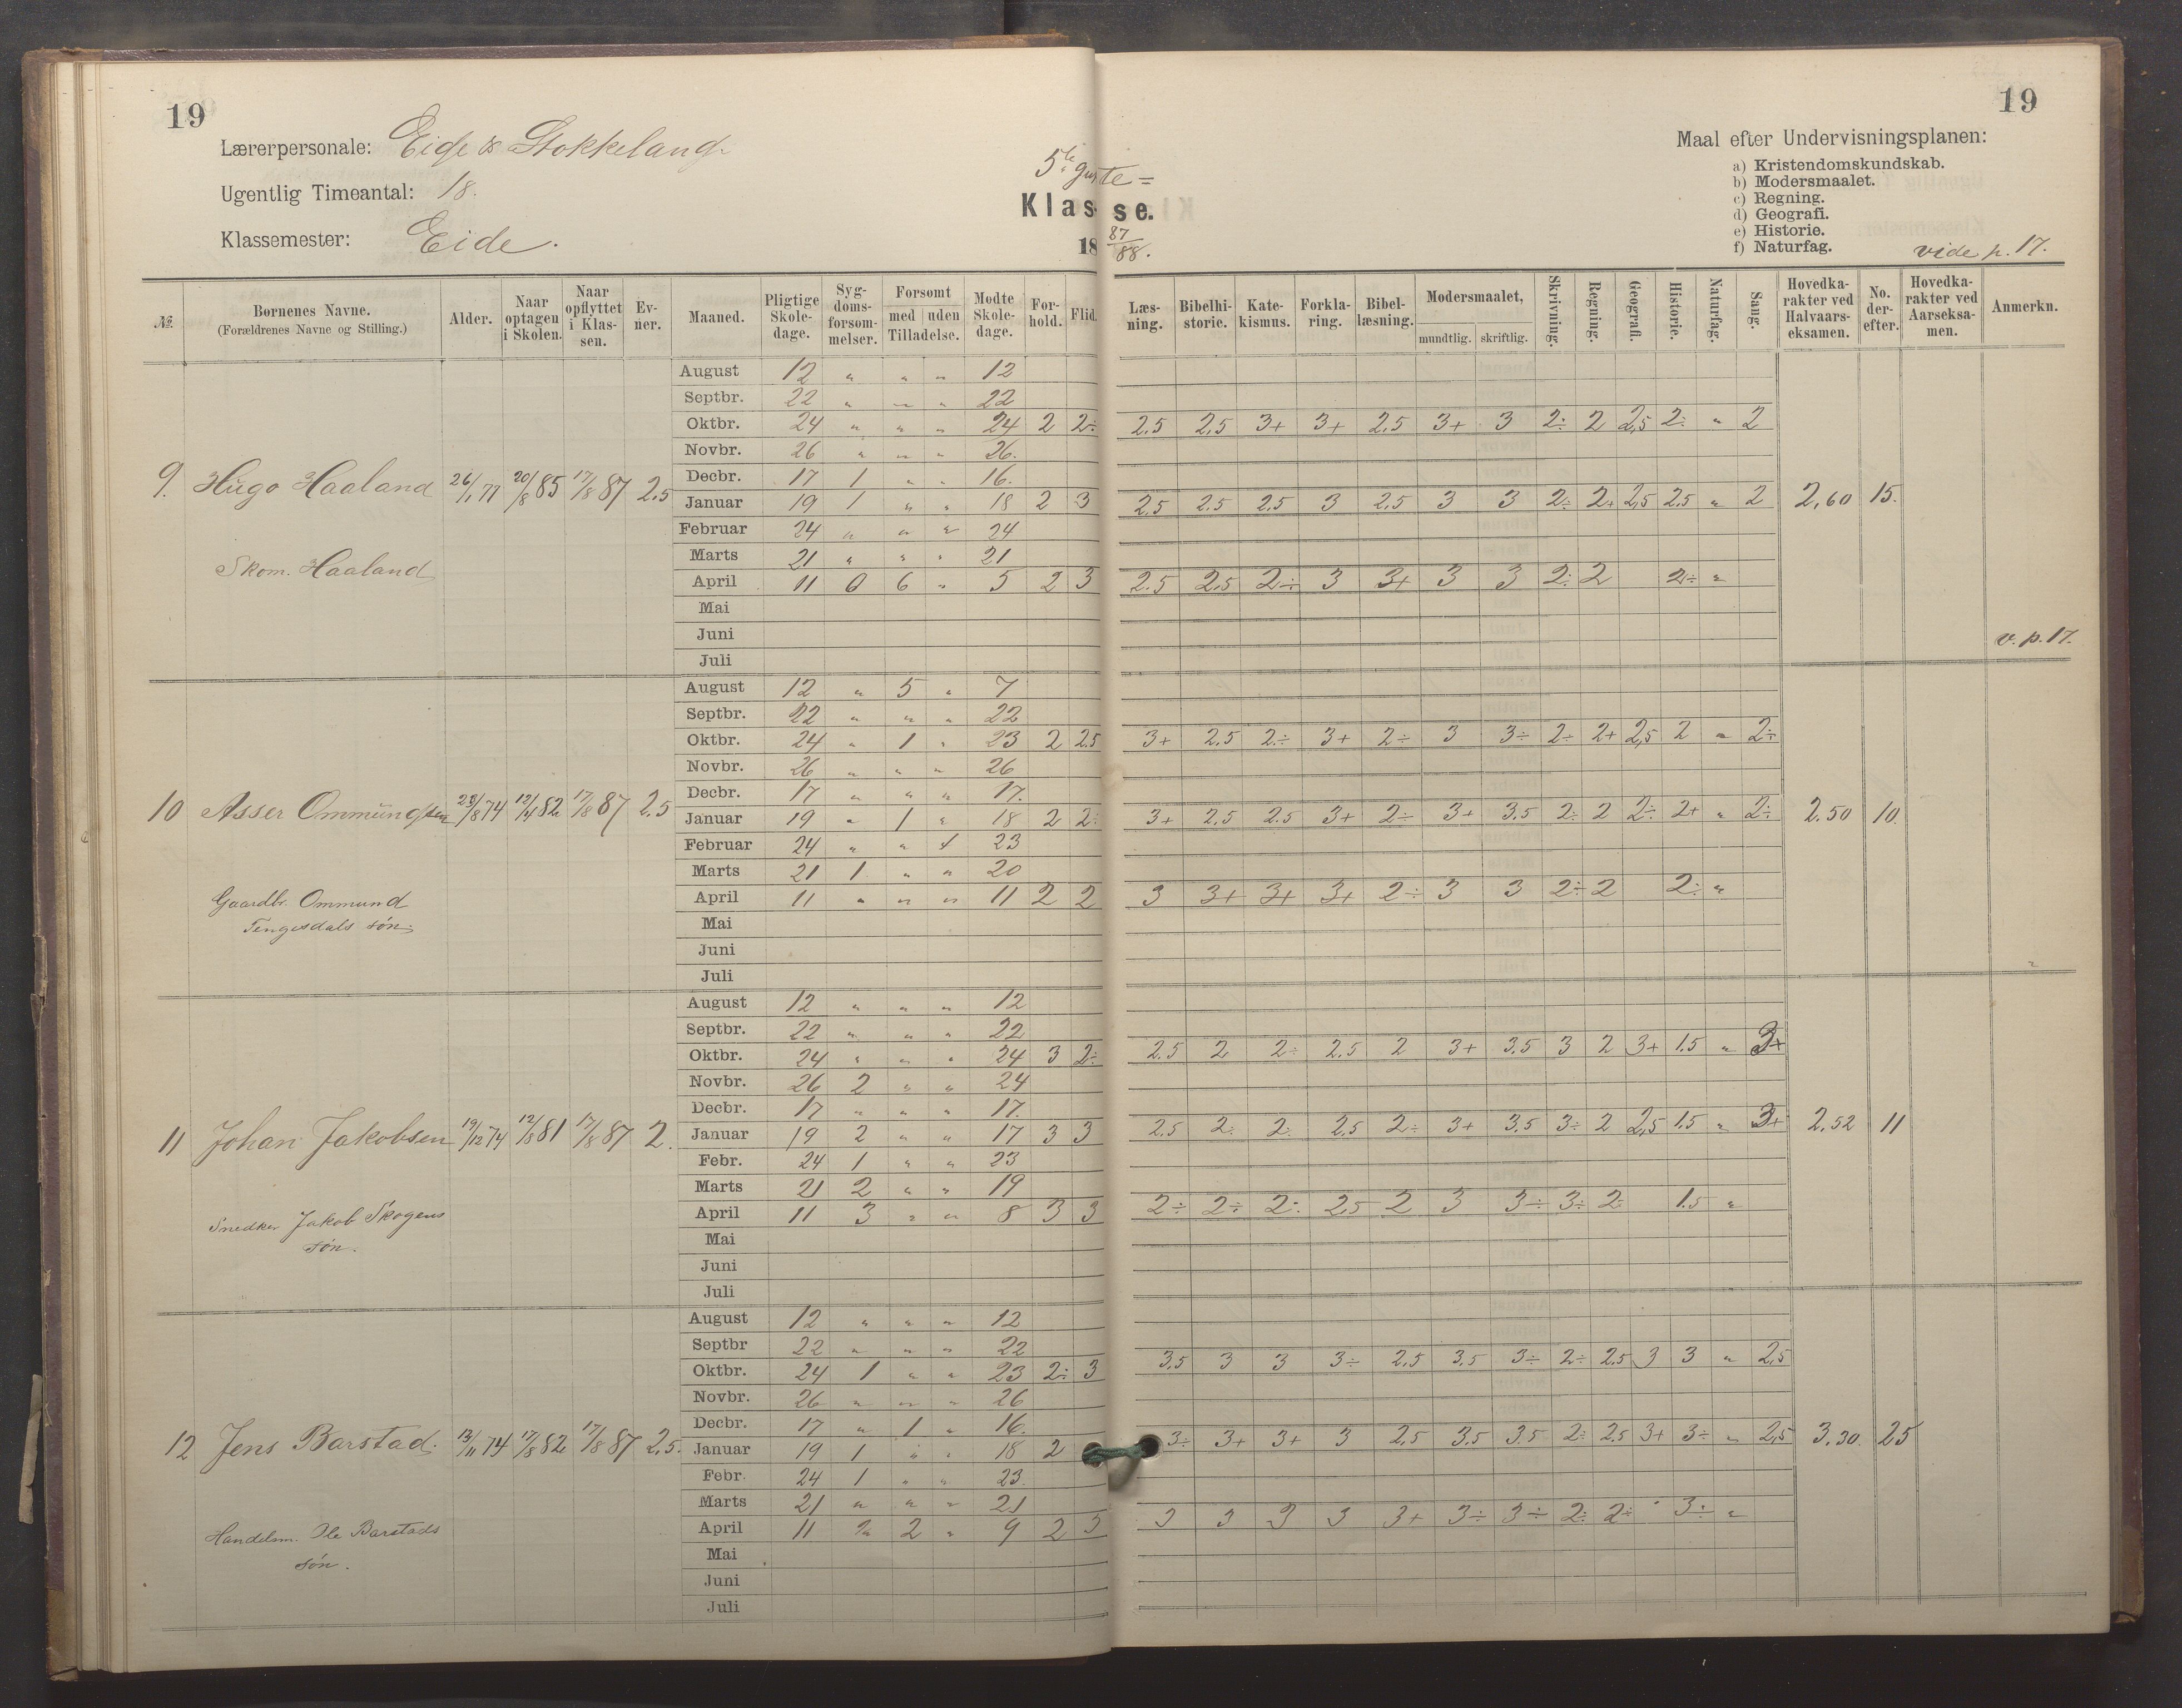 19
Lærerpersonale: Eide & Stokkeland
Ugentlig Timeantal: 18.
Klassemester: Eide.
5te
Klasse.
18 87/88.
19
Maal efter Undervisningsplanen:
a) Kristendomskundskab.
b) Modersmaalet.
c) Regning.
d) Geografi.
e) Historie.
f) Naturfag. vide p. 17.
№ | Børnenes Navne. (Forældrenes Navne og Stilling.) | Alder. | Naar optagen i Skolen. | Naar opflyttet i Klassen. | Evner. | Maaned. | Pligtige Skoledage. | Sygdomsforsømmelser. | Forsømt med uden Tilladelse. | Mødte Skoledage. | Forhold. | Flid. | Læsning. | Bibelhistorie. | Katekismus. | Forklaring. | Bibellæsning. | Modersmaalet, mundtlig. skriftlig. | Skrivning. | Regning. | Geografi. | Historie. | Naturfag. | Sang. | Hovedkarakter ved Halvaarseksamen. | No. derefter. | Hovedkarakter ved Aarseksamen. | Anmerkn.
9. Hugo Haaland 26/1 77 20/8 85 17/8 87 2.5
Skom. Haaland
August 12 " " " 12
Septbr. 22 " " " 22
Oktbr. 24 " " " 24 2 2÷ 2.5 2.5 3+ 3+ 2.5 3+ 3 2÷ 2 2,5 2÷ " 2
Novbr. 26 " " " 26.
Decbr. 17 1 " " 16.
Januar 19 1 " " 18 2 3 2.5 2.5 2.5 3 2.5 3 3 2÷ 2÷ 2,5 2.5 " 2 2,60 15.
Februar 24 " " " 24
Marts 21 " " " 21
April 11 0 6 " 5 2 3 2.5 2.5 2÷ 3 3+ 3 3 2÷ 2 2÷ "
Mai
Juni v. p. 17.
Juli
10 Asser Ommundsen 23/8 74 12/4 82 17/8 87 2.5
Gaardbr. Ommund
Tengesdals søn.
August 12 " 5 " 7
Septbr. 22 " " " 22
Oktbr. 24 " 1 " 23 2 2.5 3+ 2.5 2÷ 3+ 2÷ 3 3÷ 2÷ 2+ 2,5 2 " 2÷
Novbr. 26 " " " 26
Decbr. 17 " " " 17.
Januar 19 " 1 " 18 2 2÷ 3+ 2.5 2.5 3+ 2÷ 3+ 3.5 2÷ 2 2÷ 2+ " 2÷ 2.50 10.
Februar 24 " " 1 23
Marts 21 1 " " 20
April 11 " " " 11 2 2 3 3+ 3+ 3+ 2÷ 3 3 2÷ 2 2÷ "
Mai
Juni
Juli "
11 Johan Jakobsen 19/12 74 12/8 81 17/8 87 2.
Snedker Jakob Skogens
søn.
August 12 " " " 12
Septbr. 22 " " " 22
Oktbr. 24 " " " 24 3 2÷ 2.5 2 2÷ 2.5 2 3+ 3.5 3 2 3+ 1.5 " 3+
Novbr. 26 2 " " 24
Decbr. 17 " " " 17.
Januar 19 2 " " 17 3 3 2.5 2÷ 2÷ 2.5 2÷ 3+ 3.5 3÷ 2 2,5 1.5 " 3+ 2.52 11
Febr. 24 1 " " 23
Marts 21 2 " " 19
April 11 3 " " 8 3 3 2÷ 2÷ 2÷ 2.5 2 3 3÷ 3÷ 2 1.5 "
Mai
Juni
Juli
12 Jens Barstad. 13/11 74 17/8 82 17/8 87 2.5.
Handelsm. Ole Barstads
søn.
August 12 " " " 12
Septbr 22 " " " 22
Oktbr. 24 1 " " 23 2÷ 3 3.5 3 3 3÷ 2.5 3.5 3÷ 2÷ 2.5 3 3 " 2,5
Novbr. 26 " " " 26
Decbr. 17 " 1 " 16.
Januar 19 1 " " 18 2 3÷ 3+ 3+ 3 2.5 3.5 3.5 2÷ 2.5 3+ 3÷ " 2,5 3.30. 25
Febr. 24 1 " " 23.
Marts 21 " " " 21
April 11 " 2 " 9 2 3 3 3 3 3 3+ 3÷ 3÷ 2÷ 2÷ 3÷ "
Mai
Juni
Juli